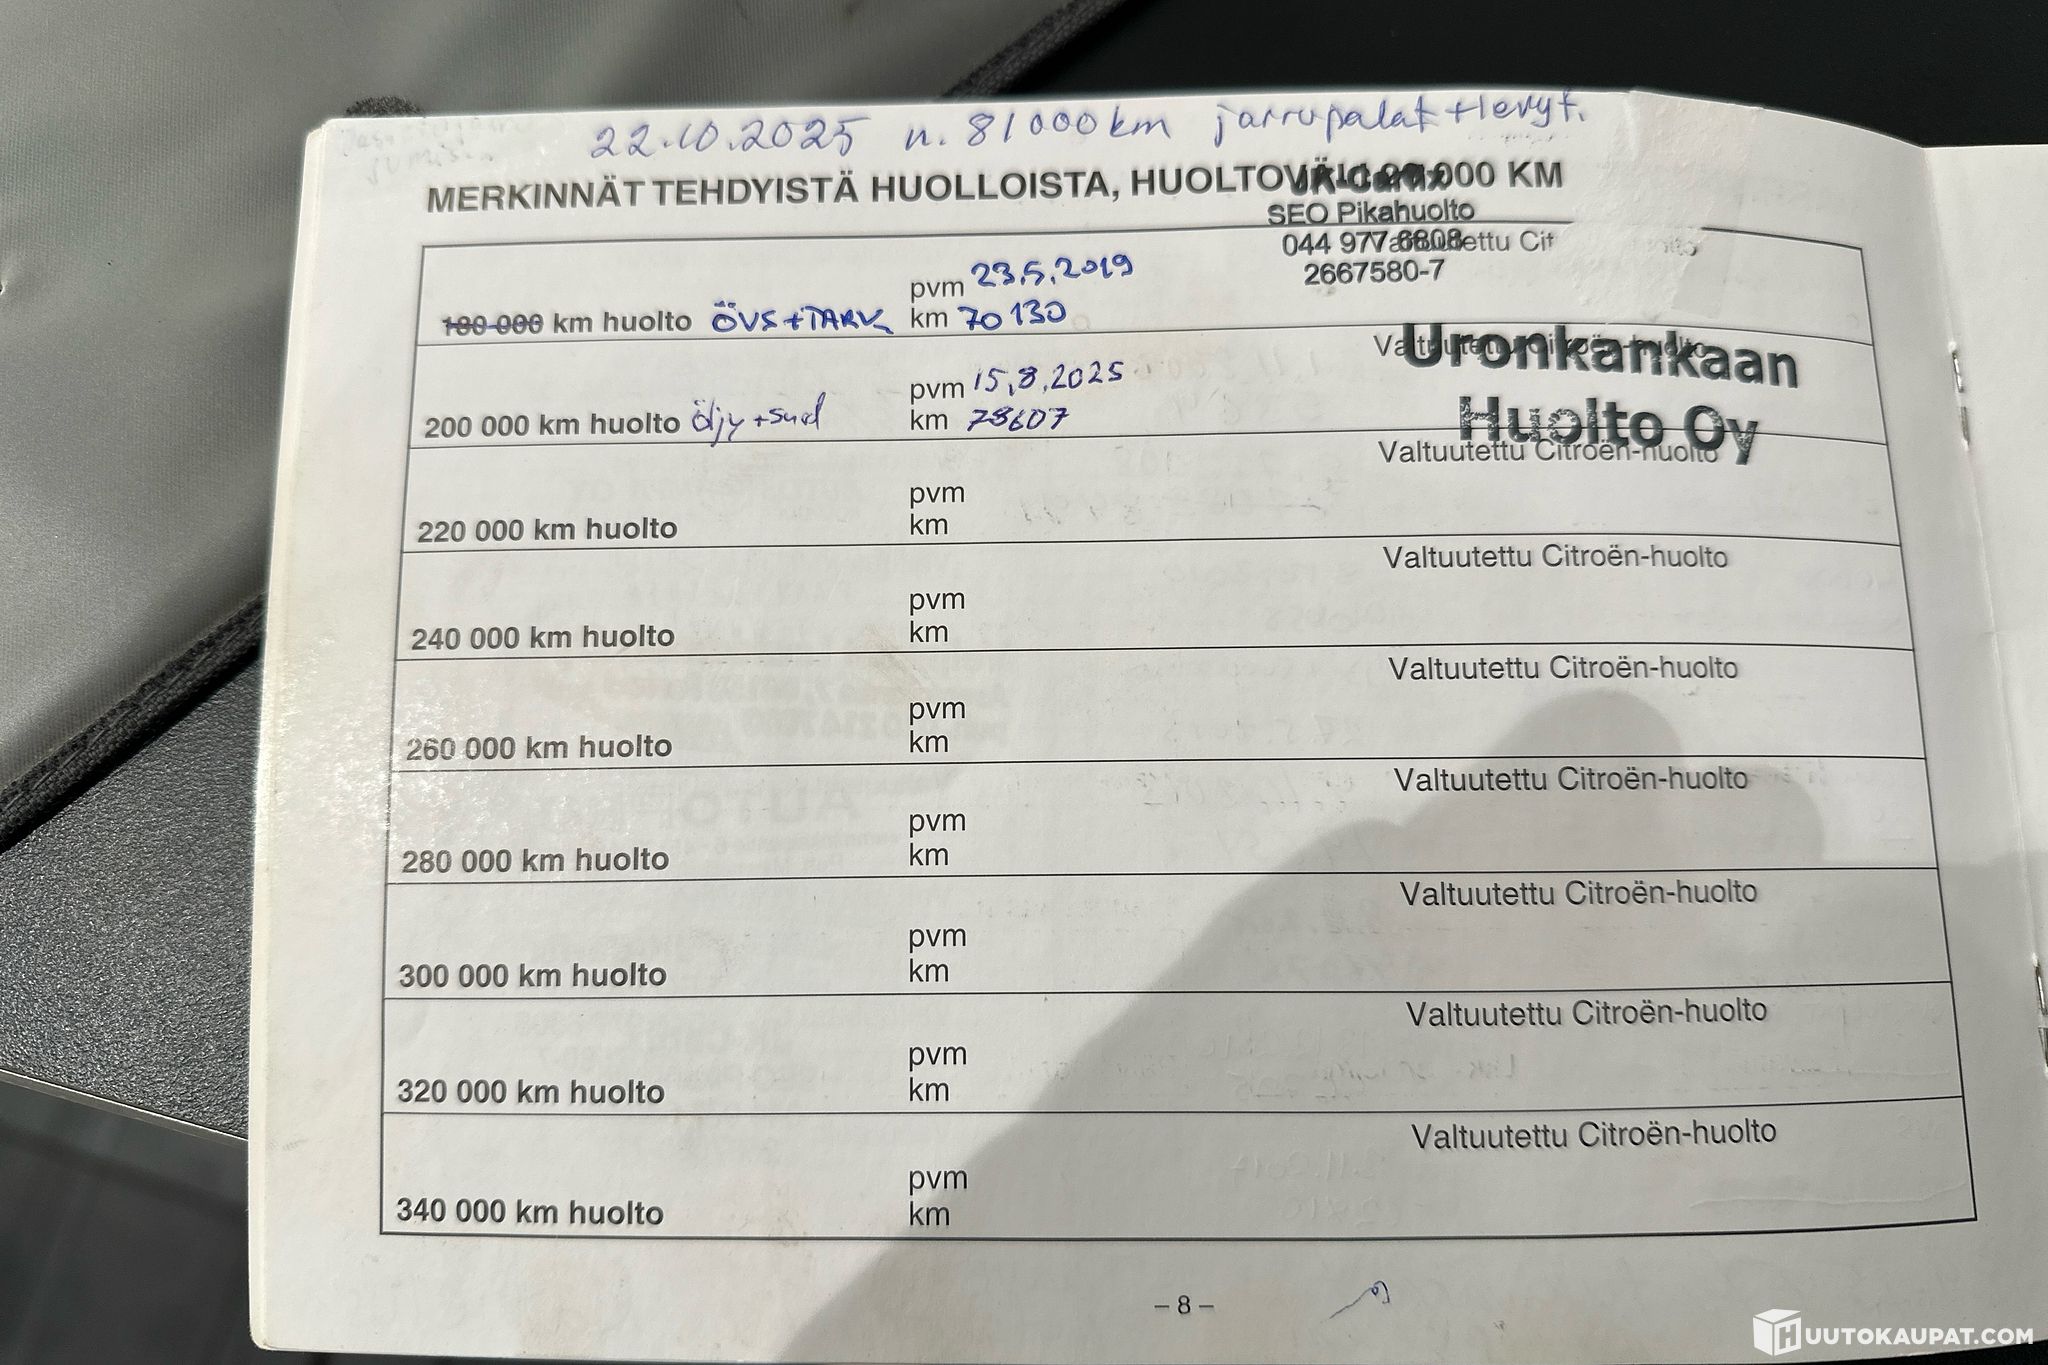 22.10.2025 n. 81000km jarrupalat + levyt.
MERKINNÄT TEHDYISTÄ HUOLLOISTA, HUOLTOVÄLI 20 000 KM
SEO Pikahuolto
044 977 6808
2667580-7
180 000 km huolto ÖVS+TARK pvm 23.5.2019
km 70130
Valtuutettu Citroën-huolto
Uronkankaan
Huolto Oy
200 000 km huolto Öljy + suod pvm 15.8.2025
km 78607
Valtuutettu Citroën-huolto
220 000 km huolto pvm
km
Valtuutettu Citroën-huolto
240 000 km huolto pvm
km
Valtuutettu Citroën-huolto
260 000 km huolto pvm
km
Valtuutettu Citroën-huolto
280 000 km huolto pvm
km
Valtuutettu Citroën-huolto
300 000 km huolto pvm
km
Valtuutettu Citroën-huolto
320 000 km huolto pvm
km
Valtuutettu Citroën-huolto
340 000 km huolto pvm
km
– 8 –
HUUTOKAUPAT.COM